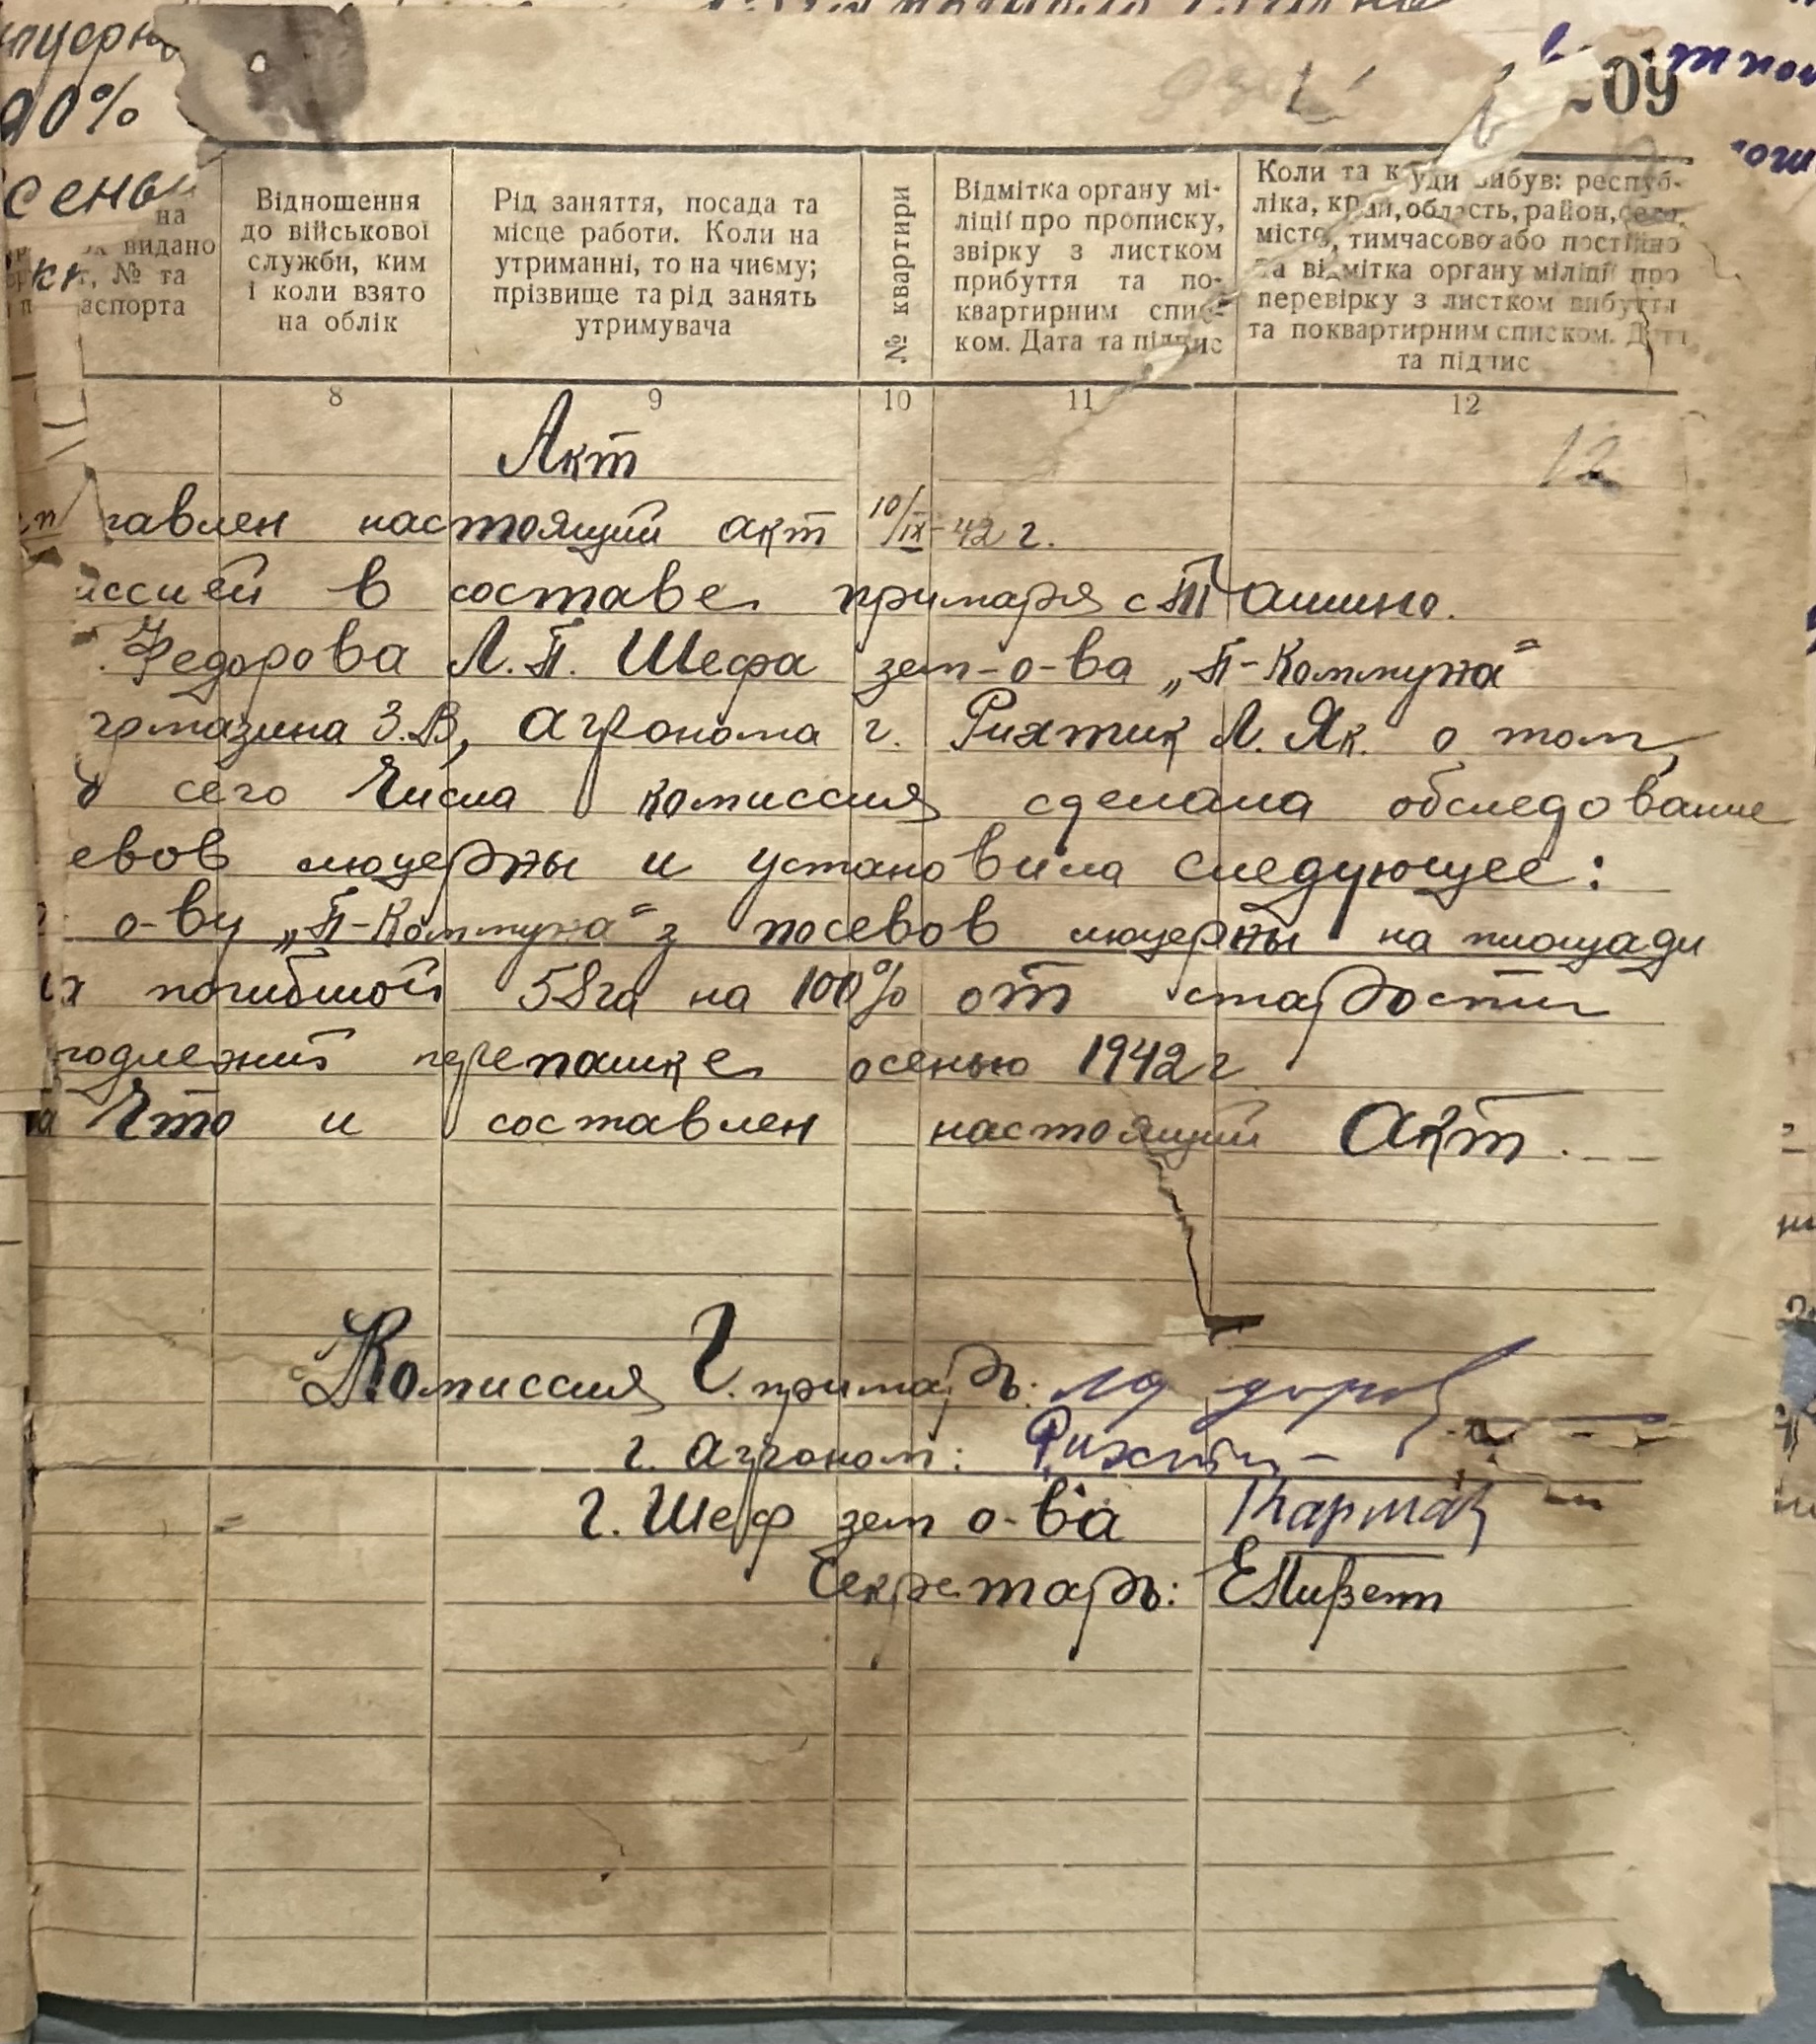 90%
09
на
видано
№ та
аспорта
Відношення
до військової
служби, ким
і коли взято
на облік
Рід заняття, посада та
місце работи. Коли на
утриманні, то на чиєму;
прізвище та рід занять
утримувача
№ квартири
Відмітка органу мі-
ліції про прописку,
звірку з листком
прибуття та по-
квартирним спис-
ком. Дата та підпис
Коли та куди вибув: респуб-
ліка, край, область, район, село,
місто, тимчасово або постійно
та відмітка органу міліції про
перевірку з листком вибуття
та поквартирним списком. Дата
та підпис
8 9 10 11 12
12
Акт
тавлен настоящий акт 10/IX-42 г.
иссией в составе примаря с Ташино.
Федорова Л.П. Шефа зем-о-ва „П-Коммуна"
З.В, агронома г. Рихтик Л. Як. о том,
сего числа комиссия сделала обследование
евов люцерны и установила следующее:
о-ву „П-Коммуна" з посевов люцерны на площади
их погибшой 58га на 100% от старости
подлежит перепашке осенью 1942 г.
Что и составлен настоящий Акт.
Комиссия Г. примарь:
г. агроном:
г. Шеф зем о-ва
Секретарь: